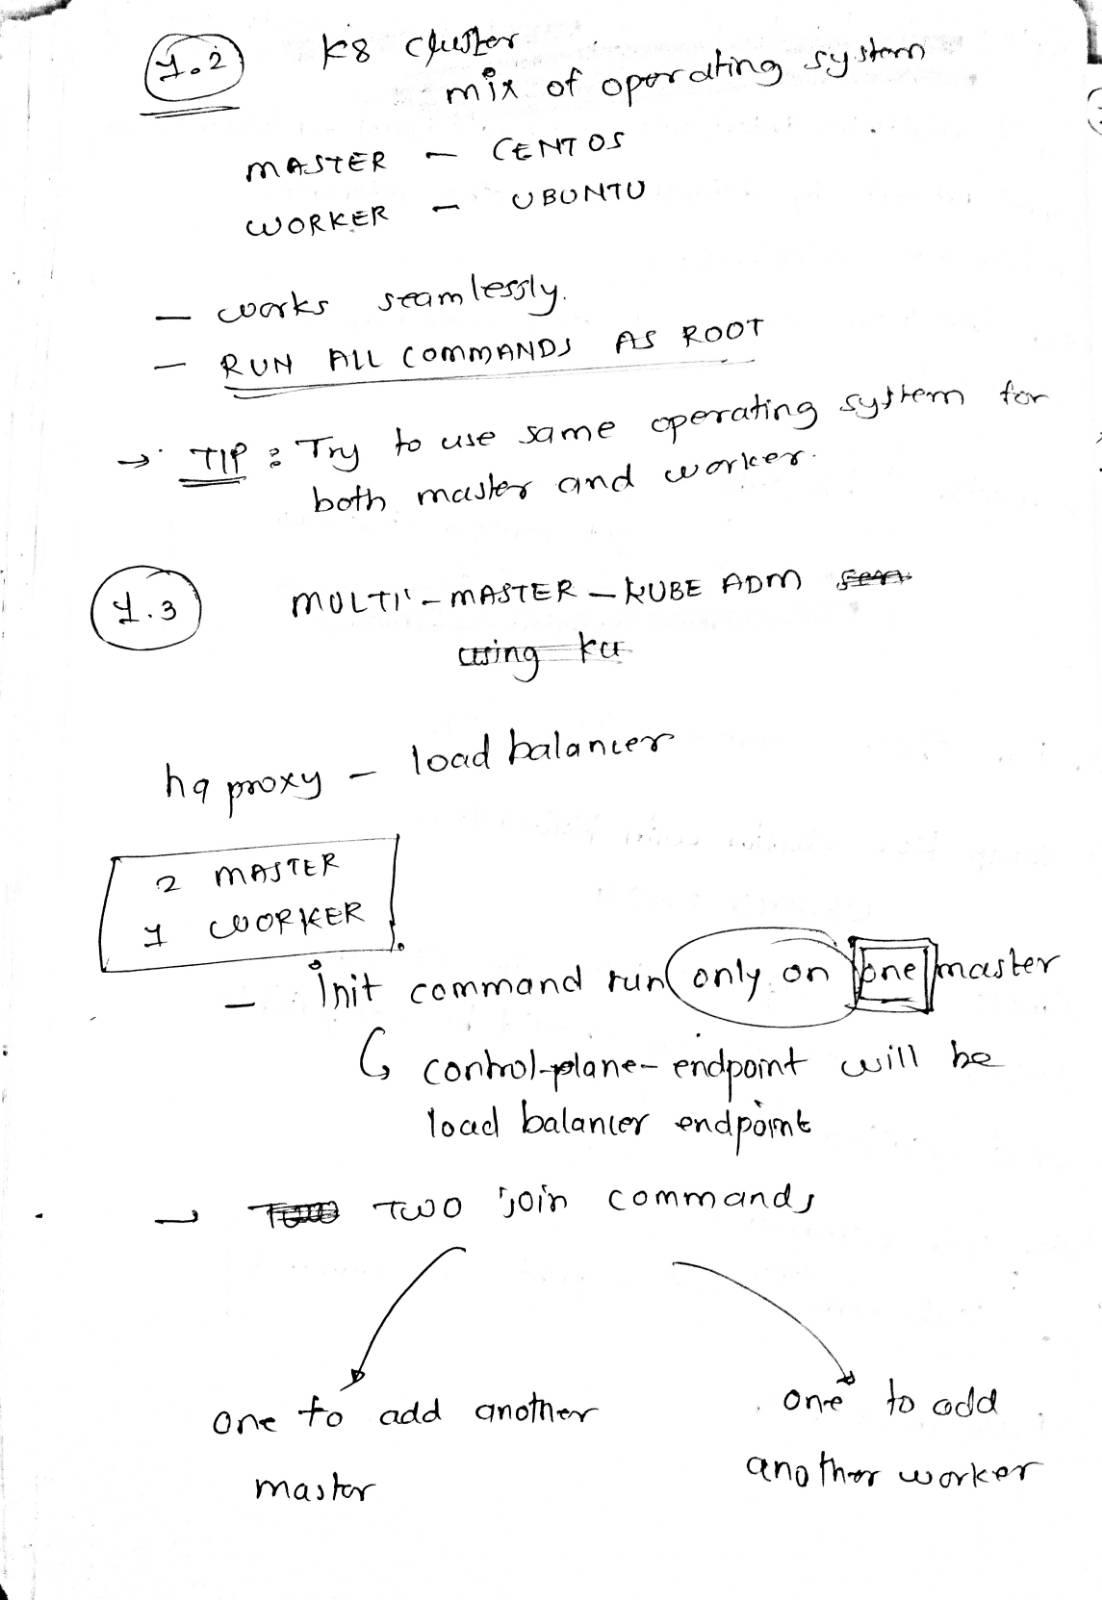 1.2
K8 cluster
mix of operating system
MASTER - CENTOS
WORKER - UBUNTU
- works seamlessly.
- RUN ALL COMMANDS AS ROOT
→ TIP : Try to use same operating system for
both master and worker.
1.3
MULTI - MASTER - KUBE ADM
using ku
ha proxy - load balancer
2 MASTER
1 WORKER
- init command run only on one master
↳ control-plane-endpoint will be
load balancer endpoint
- TWO join commands
one to add another
master
one to add
another worker